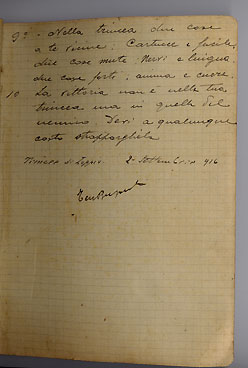 9º - Nella trincea due cose
a te vicine: Cartucce e fucile
due cose mute: Nervi e lingua
due cose forti: anima e cuore.
10 La vittoria non è nella tua
trincea ma in quella del
nemico. Devi a qualunque
costo strappargliela
2 Settembre 916